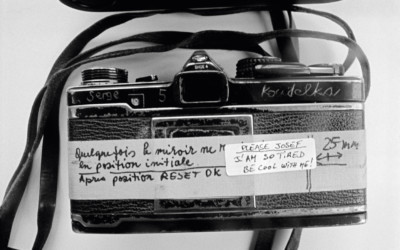 Serge 5 Koudelka
Quelquefois le miroir ne
en position initiale.
Après position RESET OK
PLEASE JOSEF
I'AM SO TIRED
BE COOL WITH ME!
25